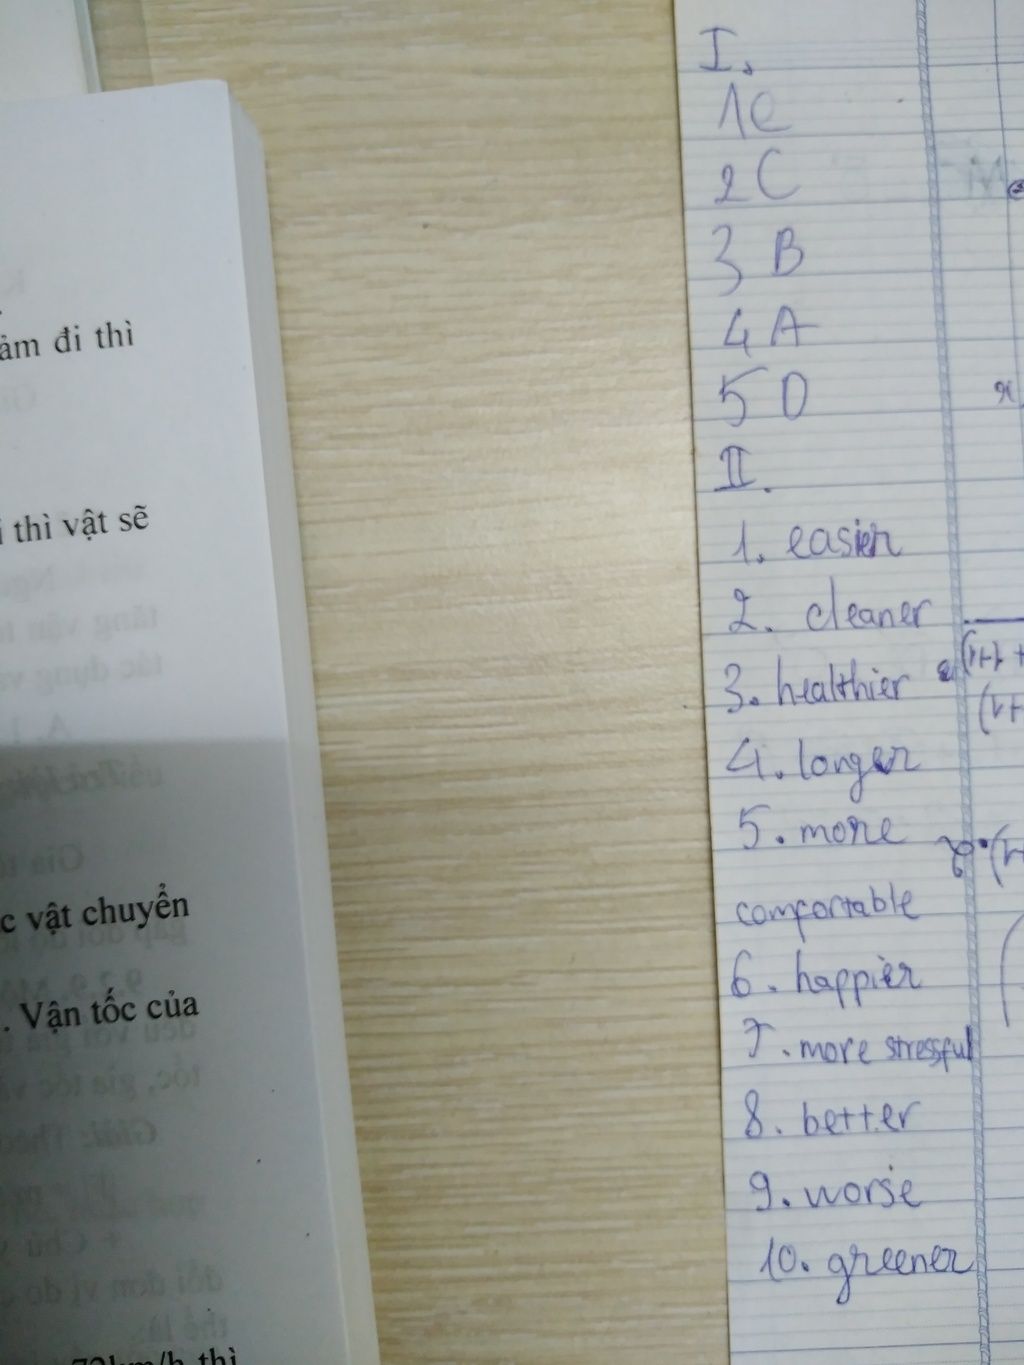 ảm đi thì
thì vật sẽ
c vật chuyển
. Vận tốc của
72km/h thì
I.
1C
2C
3 B
4 A
5 D
II.
1. easier
2. cleaner
3. healthier
4. longer
5. more
comfortable
6. happier
7. more stressful
8. better
9. worse
10. greener